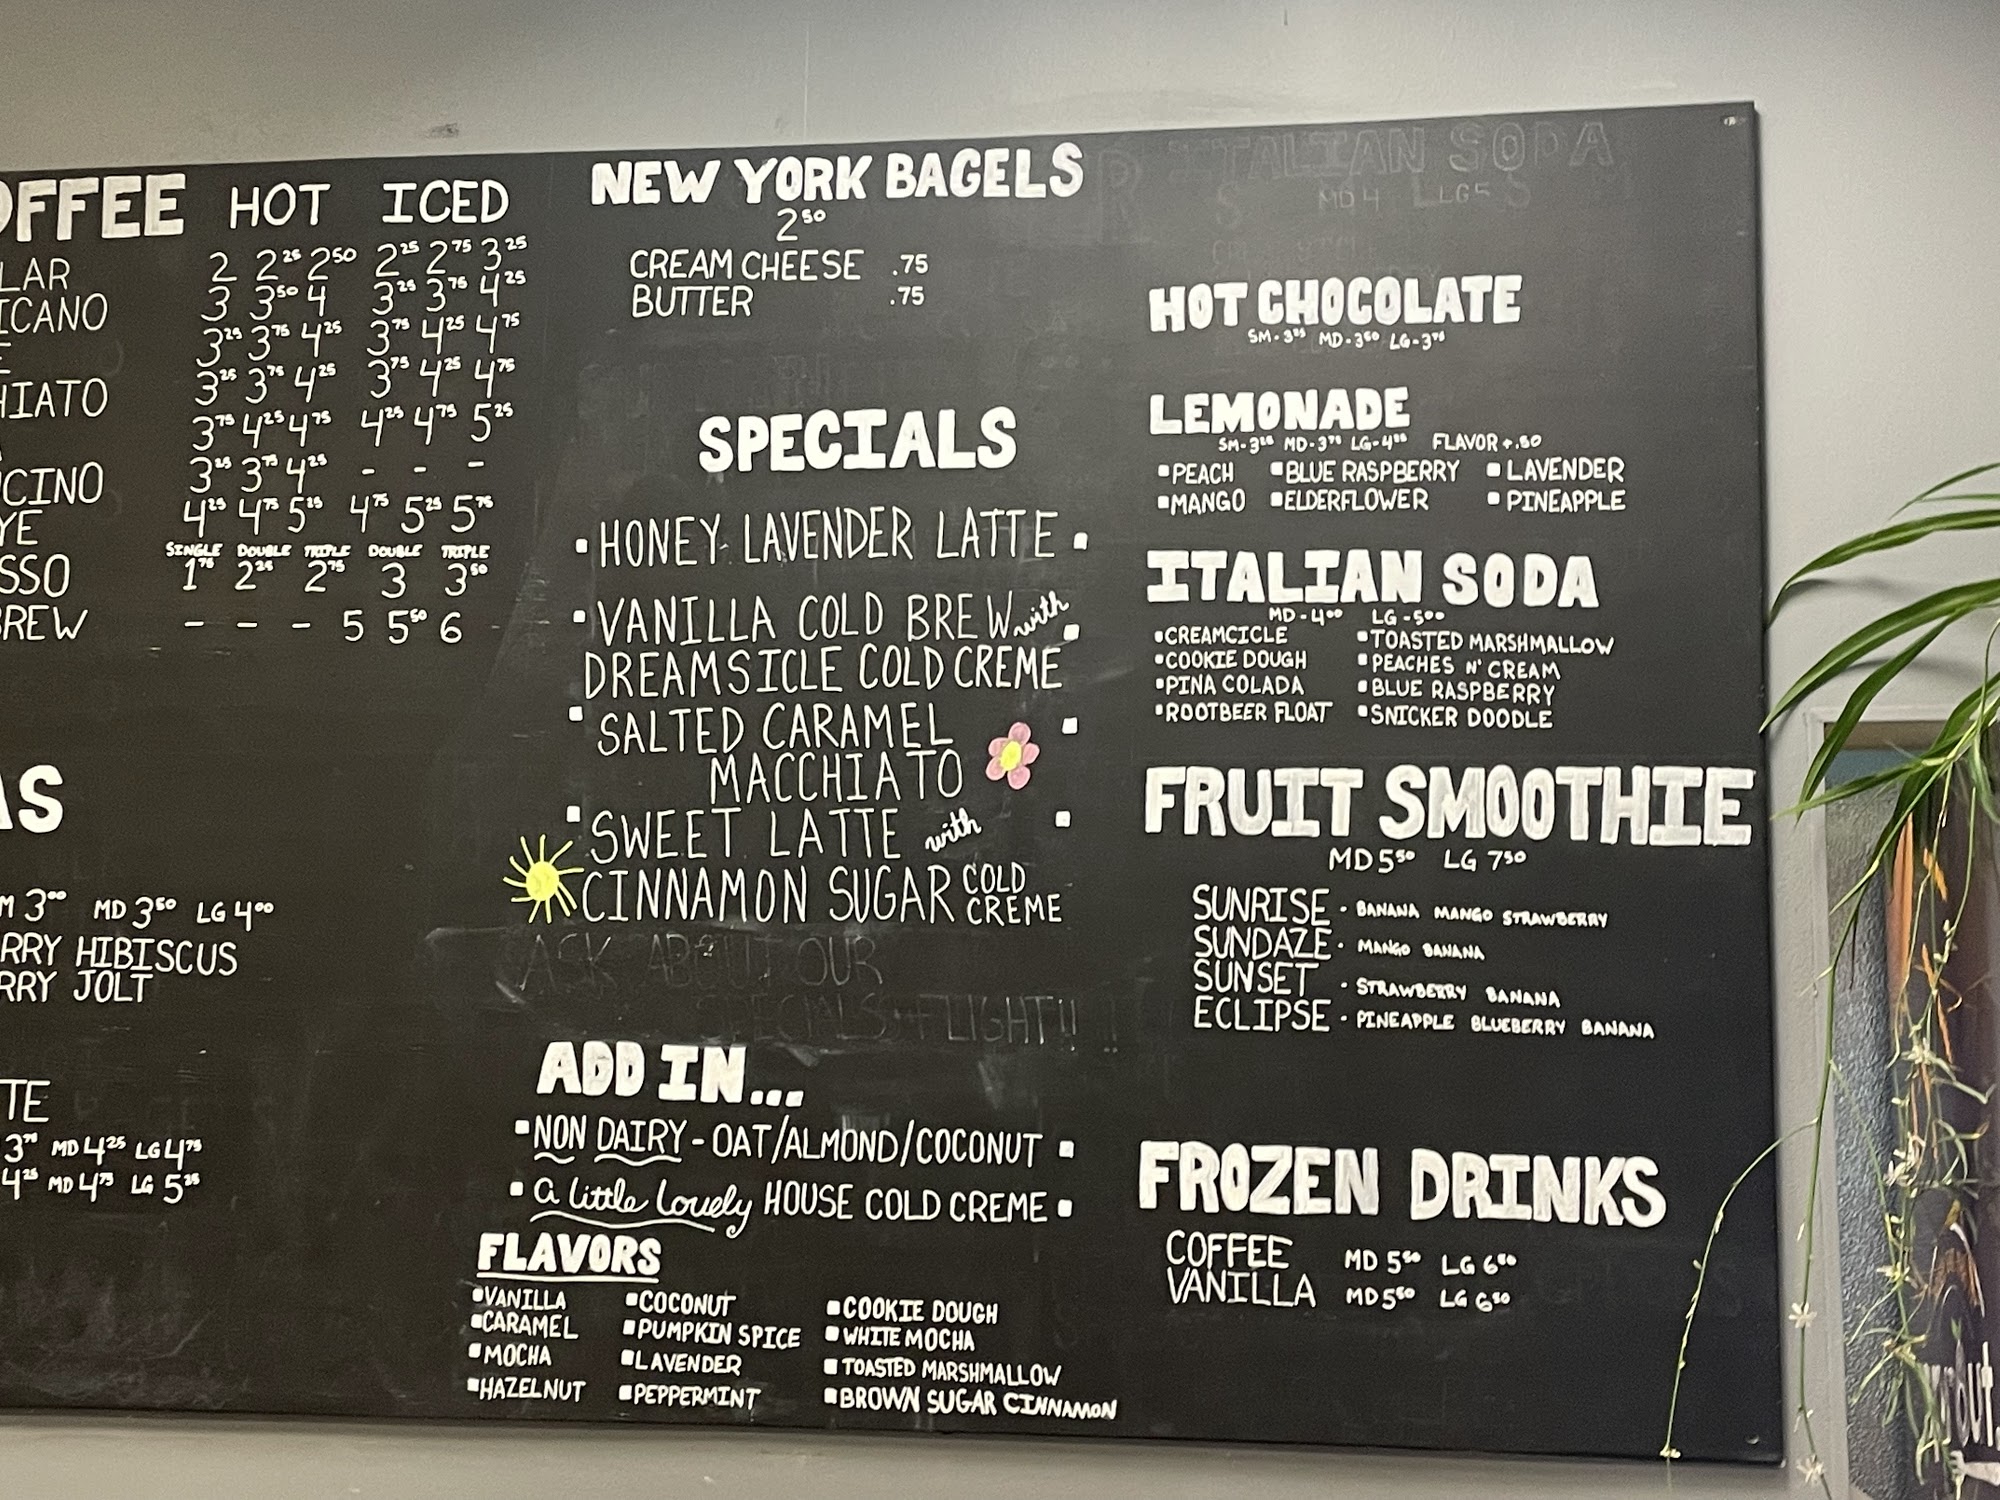 OFFEE HOT ICED
LAR 2 2²⁵ 2⁵⁰ 2²⁵ 2⁷⁵ 3²⁵
ICANO 3 3⁵⁰ 4 3²⁵ 3⁷⁵ 4²⁵
E 3²⁵ 3⁷⁵ 4²⁵ 3⁷⁵ 4²⁵ 4⁷⁵
HIATO 3²⁵ 3⁷⁵ 4²⁵ 3⁷⁵ 4²⁵ 4⁷⁵
A 3⁷⁵ 4²⁵ 4⁷⁵ 4²⁵ 4⁷⁵ 5²⁵
CINO 3²⁵ 3⁷⁵ 4²⁵ - - -
YE 4²⁵ 4⁷⁵ 5²⁵ 4⁷⁵ 5²⁵ 5⁷⁵
SINGLE DOUBLE TRIPLE DOUBLE TRIPLE
SSO 1⁷⁵ 2²⁵ 2⁷⁵ 3 3⁵⁰
BREW - - - 5 5⁵⁰ 6
AS
M 3⁰⁰ MD 3⁵⁰ LG 4⁰⁰
RRY HIBISCUS
RRY JOLT
TE
3⁷⁵ MD 4²⁵ LG 4⁷⁵
4²⁵ MD 4⁷⁵ LG 5²⁵
NEW YORK BAGELS
2⁵⁰
CREAM CHEESE .75
BUTTER .75
SPECIALS
▪HONEY LAVENDER LATTE▪
▪VANILLA COLD BREW with
DREAMSICLE COLD CREME▪
▪SALTED CARAMEL
MACCHIATO▪
▪SWEET LATTE with▪
CINNAMON SUGAR COLD
CREME
ASK ABOUT OUR
SPECIALS FLIGHT!!
ADD IN...
▪NON DAIRY - OAT/ALMOND/COCONUT▪
▪a little lovely HOUSE COLD CREME▪
FLAVORS
▪VANILLA ▪COCONUT ▪COOKIE DOUGH
▪CARAMEL ▪PUMPKIN SPICE ▪WHITE MOCHA
▪MOCHA ▪LAVENDER ▪TOASTED MARSHMALLOW
▪HAZELNUT ▪PEPPERMINT ▪BROWN SUGAR CINNAMON
ITALIAN SODA
MD 4 LG 5
HOT CHOCOLATE
SM-3²⁵ MD-3⁵⁰ LG-3⁷⁵
LEMONADE
SM-3²⁵ MD-3⁷⁵ LG-4²⁵ FLAVOR +.50
▪PEACH ▪BLUE RASPBERRY ▪LAVENDER
▪MANGO ▪ELDERFLOWER ▪PINEAPPLE
ITALIAN SODA
MD-4⁰⁰ LG-5⁰⁰
▪CREAMCICLE ▪TOASTED MARSHMALLOW
▪COOKIE DOUGH ▪PEACHES N' CREAM
▪PINA COLADA ▪BLUE RASPBERRY
▪ROOTBEER FLOAT ▪SNICKER DOODLE
FRUIT SMOOTHIE
MD 5⁵⁰ LG 7⁵⁰
SUNRISE · BANANA MANGO STRAWBERRY
SUNDAZE · MANGO BANANA
SUNSET · STRAWBERRY BANANA
ECLIPSE · PINEAPPLE BLUEBERRY BANANA
FROZEN DRINKS
COFFEE MD 5⁵⁰ LG 6⁵⁰
VANILLA MD 5⁵⁰ LG 6⁵⁰